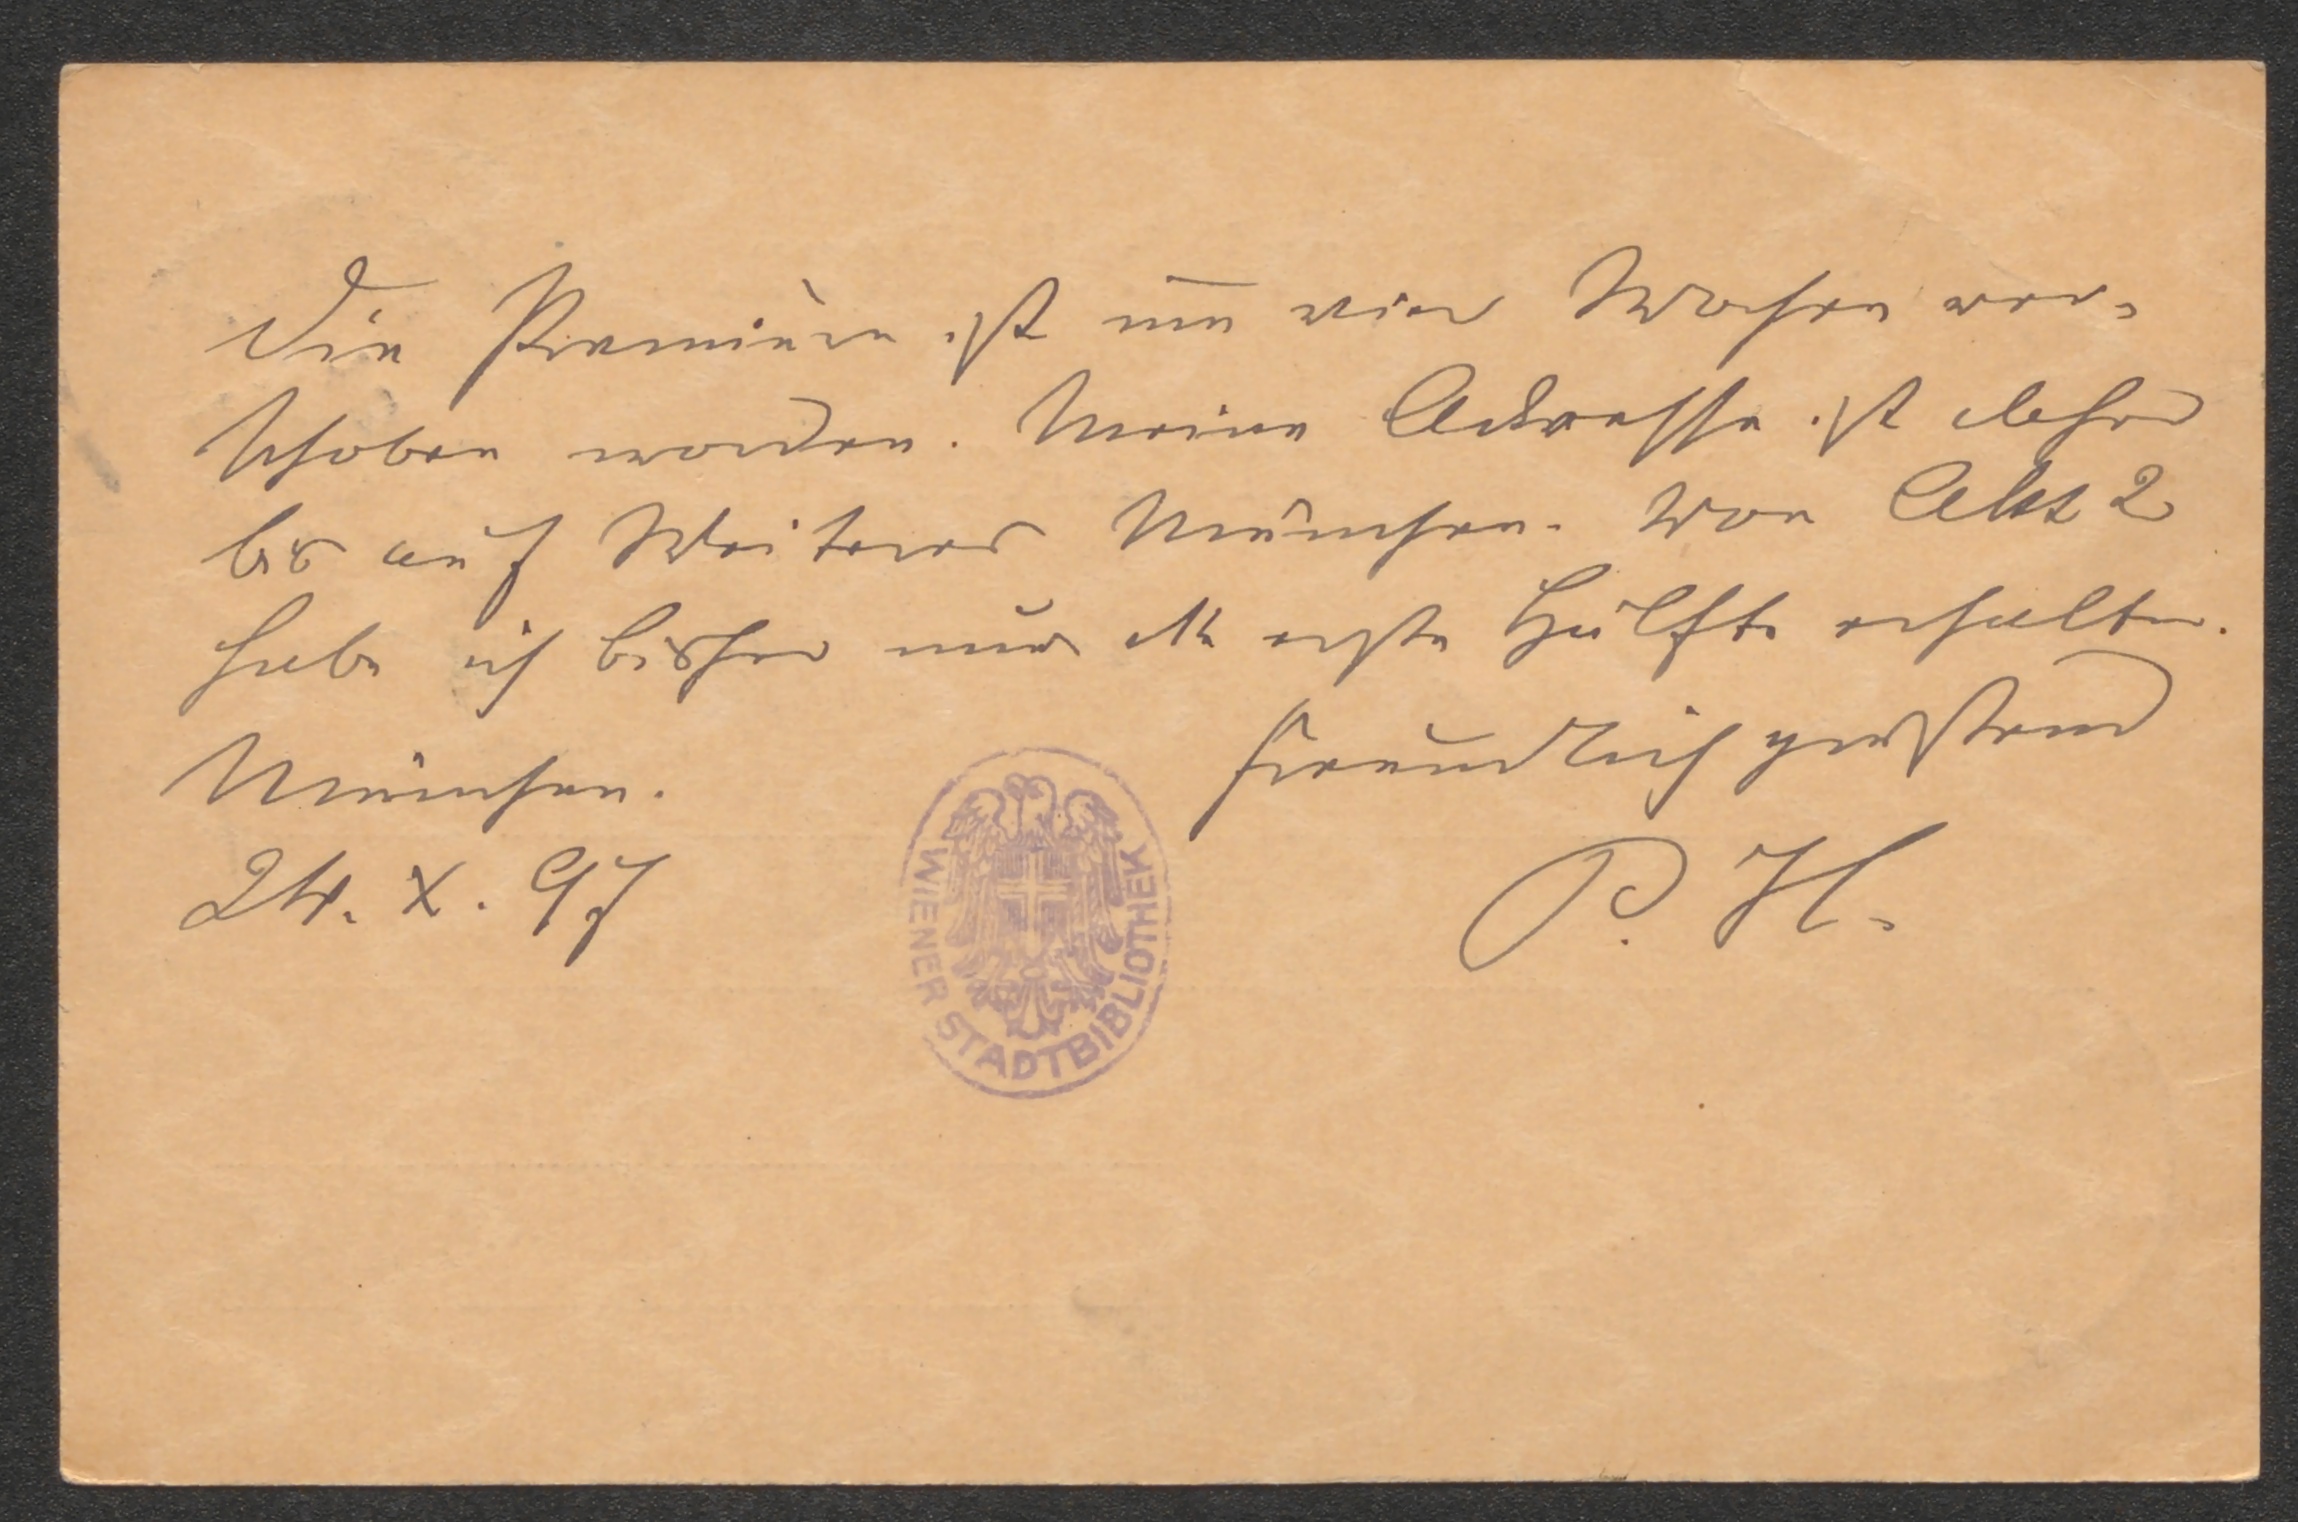 Die Première ist um vier Wochen ver-
schoben worden. Meine Adresse ist daher
bis auf Weiteres München. Von Akt 2
habe ich bisher nur die erste Hälfte erhalten.
Freundlich grüßend
München.
24. X. 97
P. H.
WIENER STADTBIBLIOTHEK